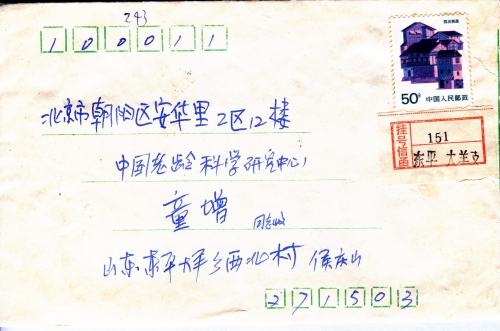 243
100011
四川民居
50分 中国人民邮政
北京市朝阳区安华里2区12楼
挂号信函
151
东平 大羊支
中国老龄科学研究中心
童增 同志收
山东东平大羊乡西北村 侯庆山
271503